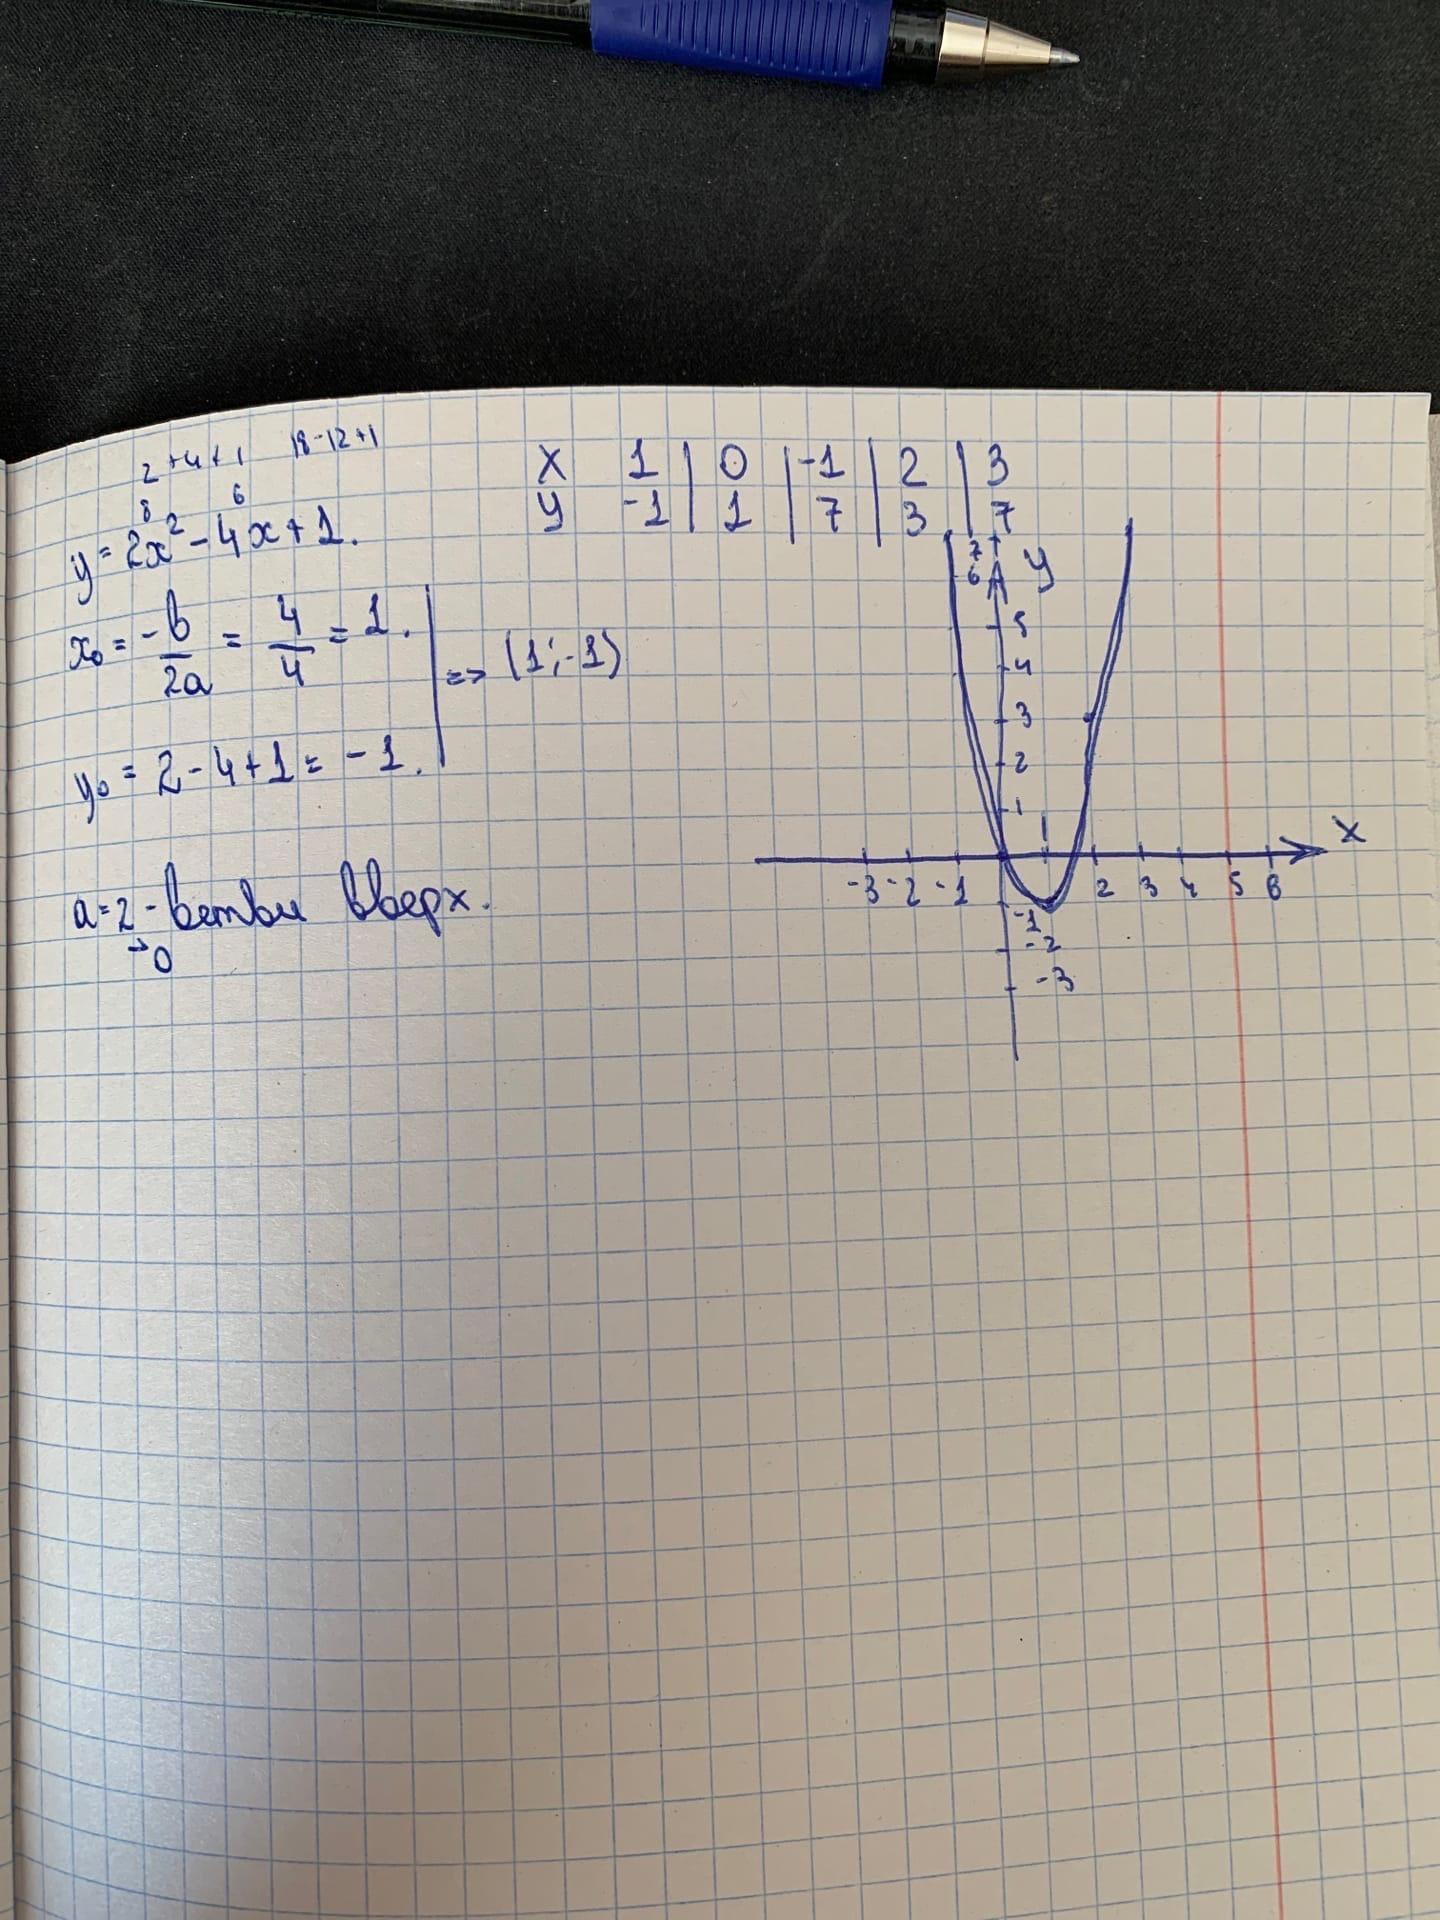 2 +4+1 18-12+1
8 6
y = 2x² - 4x + 1.
x₀ = -b/2a = 4/4 = 1. => (1; -1)
y₀ = 2 - 4 + 1 = -1.
a = 2 - ветви вверх.
>0
x 1 | 0 | -1 | 2 | 3
y -1 | 1 | 7 | 3 | 7
7
6 y
5
4
3
2
1
1 x
-3 -2 -1 2 3 4 5 6
-1
-2
-3